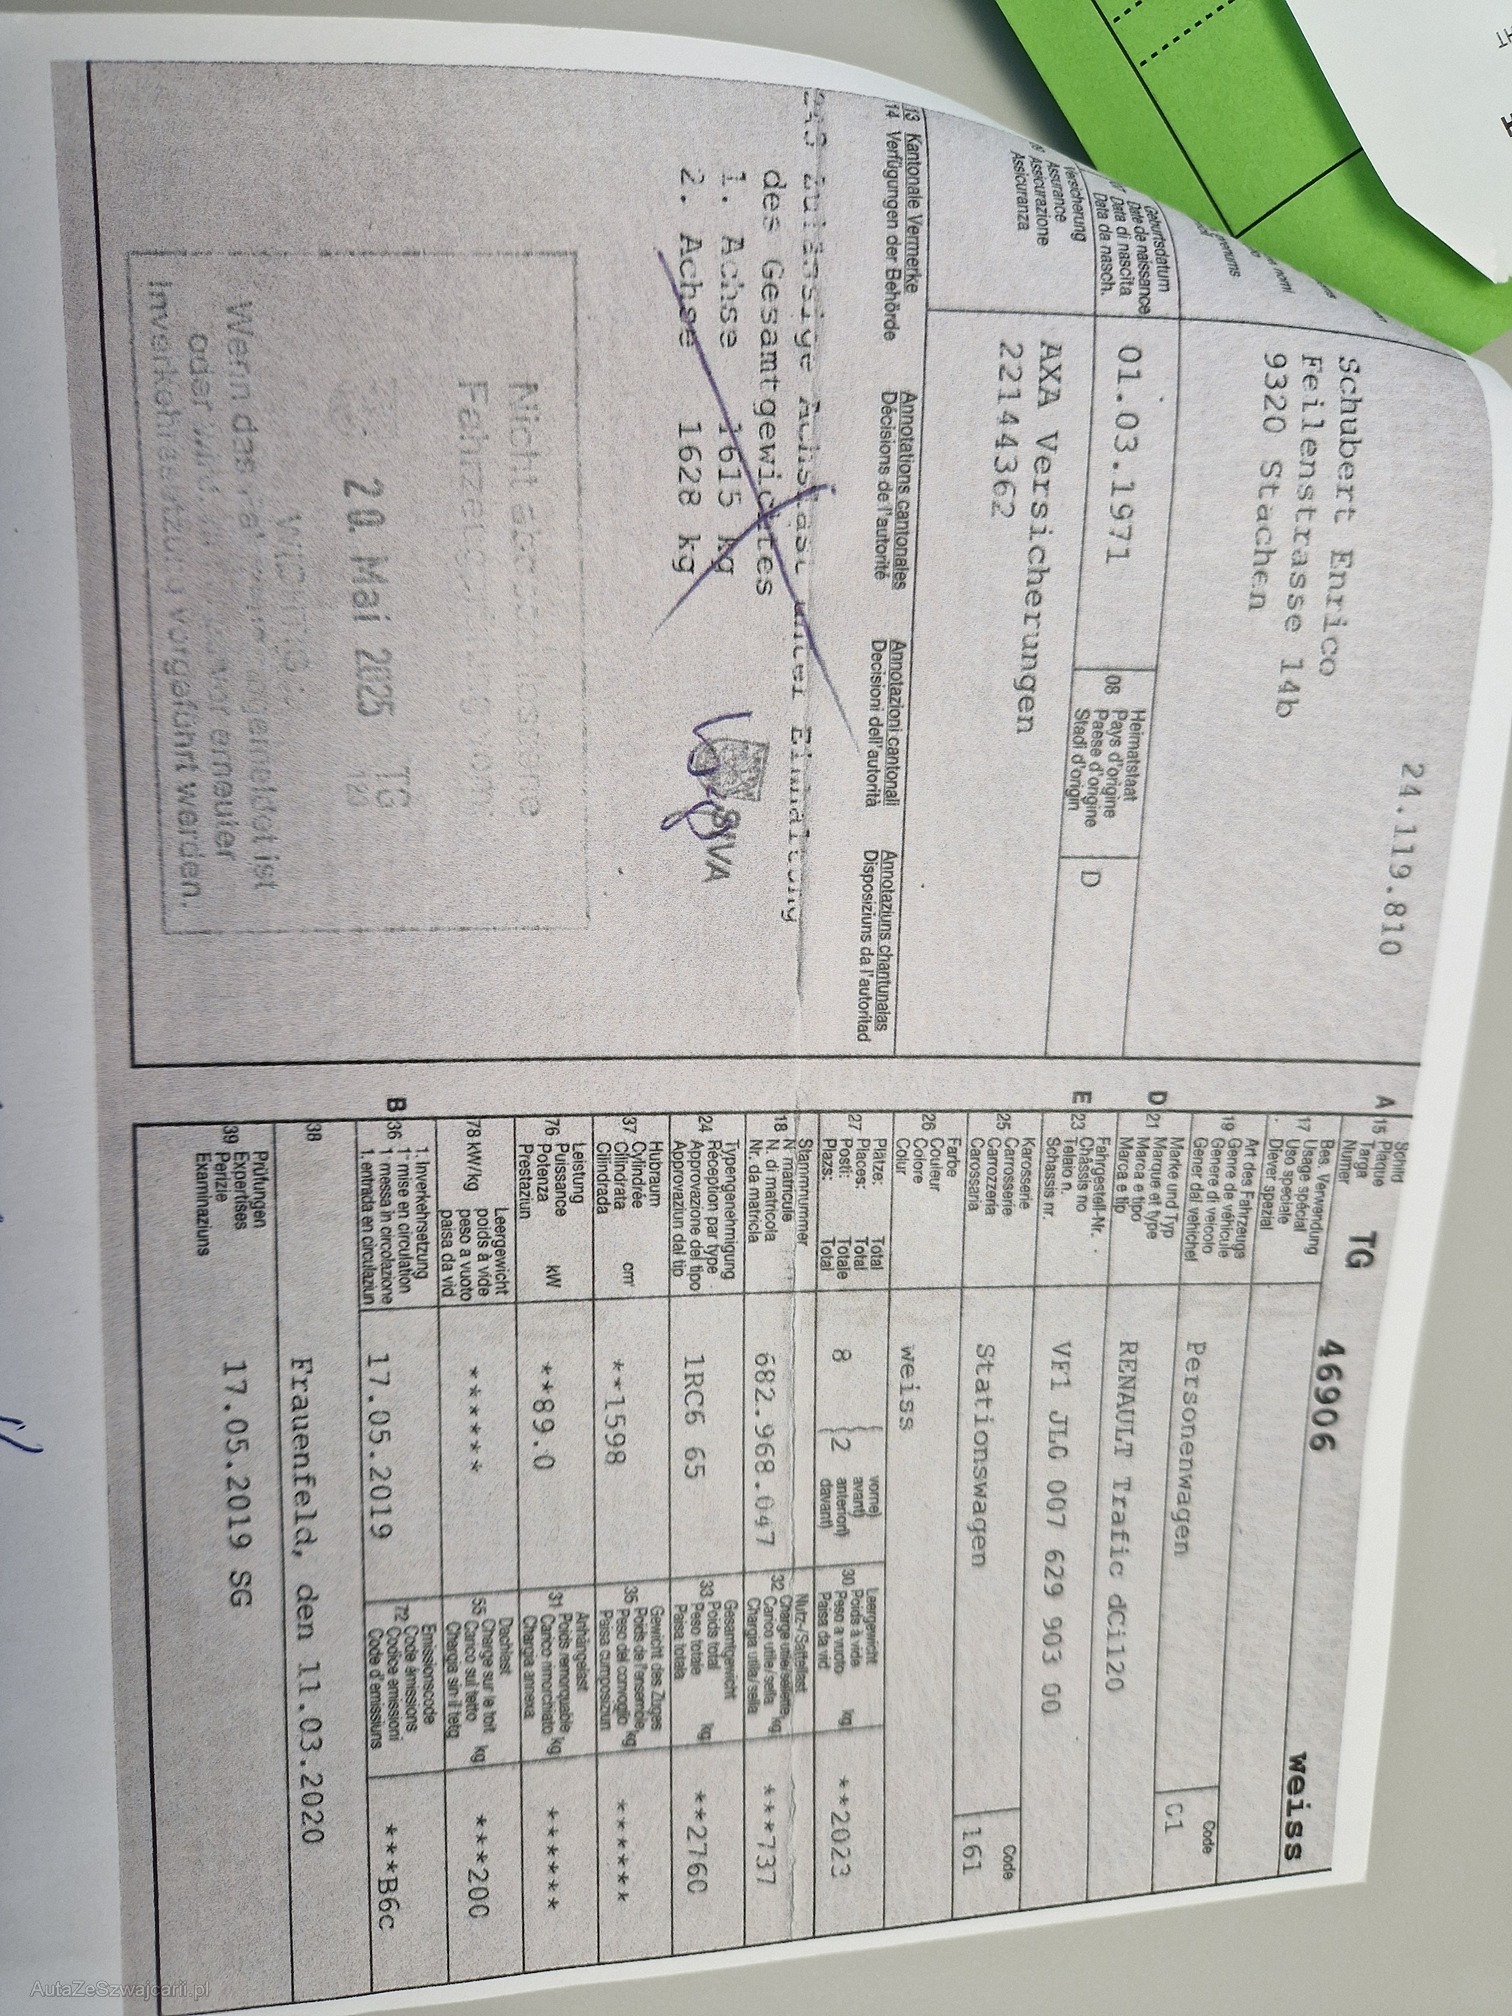 24.119.810
Schubert Enrico
Feilenstrasse 14b
9320 Stachen
Geburtsdatum
Date de naissance
Data di nascita
Data da nasch.
01.03.1971
Heimatstaat
08 Pays d'origine
Paese d'origine
Stadi d'origin
D
Versicherung
Assurance
Assicurazione
Assicuranza
AXA Versicherungen
22144362
13 Kantonale Vermerke Annotations cantonales Annotazioni cantonali Annotaziuns chantunalas
14 Verfügungen der Behörde Décisions de l'autorité Decisioni dell'autorità Disposiziuns da l'autoritad
zulässige Achslast unter Einhaltung
des Gesamtgewichtes
1. Achse 1615 kg
2. Achse 1628 kg
Nicht
20. Mai 2025 TG
Wenn das
oder erneuter
Inverkehrssetzung vorgeführt werden.
A 15 Schild
Plaque
Targa
Numer
TG 46906 weiss
17 Bes. Verwendung
Usage spécial
Uso speciale
Diever spezial
19 Art des Fahrzeugs
Genre de véhicule
Genere di veicolo
Gener dal vehichel
Personenwagen
Code
01
D 21 Marke und Typ
Marque et type
Marca e tipo
Marca e tip
RENAULT Trafic dCi120
E 23 Fahrgestell-Nr.
Châssis no
Telaio n.
Schassis nr.
VF1 JLG 007 629 903 00
25 Karosserie
Carrosserie
Carrozzeria
Carossaria
Stationswagen
Code
161
26 Farbe
Couleur
Colore
Colur
weiss
27 Plätze: Total
Places: Total
Posti: Totale
Plazs: Total
8 (2 vorne)
avant)
anteriori)
davant)
30 Leergewicht
Poids à vide
Peso a vuoto kg
Paisa da vid
**2023
18 Stammnummer
N° matricule
N. di matricola
Nr. da matricla
682.968.047
32 Nutz-/Sattellast
Charge utile/sellette kg
Carico utile/sella
Chargia utila/sella
***737
24 Typengenehmigung
Réception par type
Approvazione del tipo
Approvaziun dal tip
1RC6 65
33 Gesamtgewicht
Poids total kg
Peso totale
Paisa totala
**2760
37 Hubraum
Cylindrée cm³
Cilindrata
Cilindrada
**1598
35 Gewicht des Zuges
Poids de l'ensemble kg
Peso del convoglio
Paisa cumposiziun
******
76 Leistung
Puissance kW
Potenza
Prestaziun
**89.0
31 Anhängelast
Poids remorquable kg
Carico rimorchiato
Chargia annexa
******
78 kW/kg Leergewicht
poids à vide
peso a vuoto
paisa da vid
******
55 Dachlast
Charge sur le toit kg
Carico sul tetto
Chargia sin il tetg
***200
B 36 1. Inverkehrsetzung
1re mise en circulation
1 messa in circolazione
1. entrada en circulaziun
17.05.2019
72 Emissionscode
Code émissions
Codice emissioni
Code d'emissiuns
***B6c
38 Frauenfeld, den 11.03.2020
39 Prüfungen
Expertises
Perizie
Examinaziuns
17.05.2019 SG
AutaZeSzwajcarii.pl